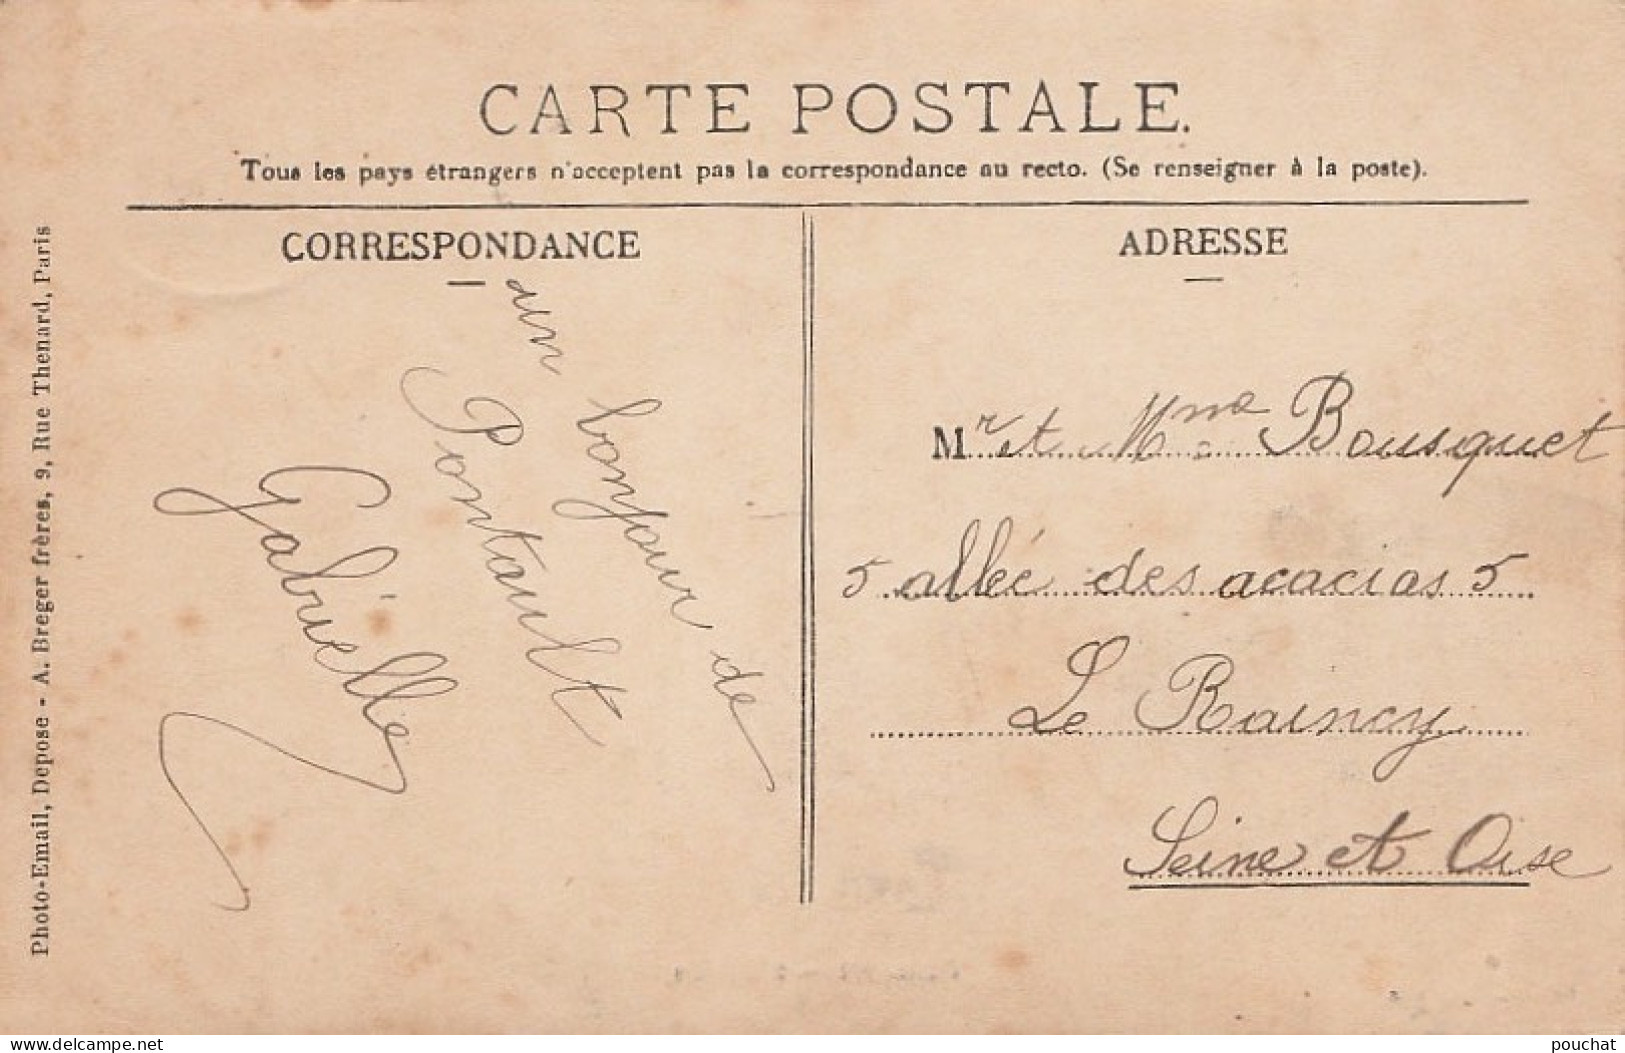 CARTE POSTALE.
Tous les pays étrangers n'acceptent pas la correspondance au recto. (Se renseigner à la poste).
CORRESPONDANCE
un bonjour de
Pontault
Gabrielle
ADRESSE
Mr et Mme Bousquet
5 allée des acacias 5
Le Raincy
Seine et Oise
Photo-Email, Depose - A. Breger frères, 9, Rue Thenard, Paris
www.delcampe.net
pouchat